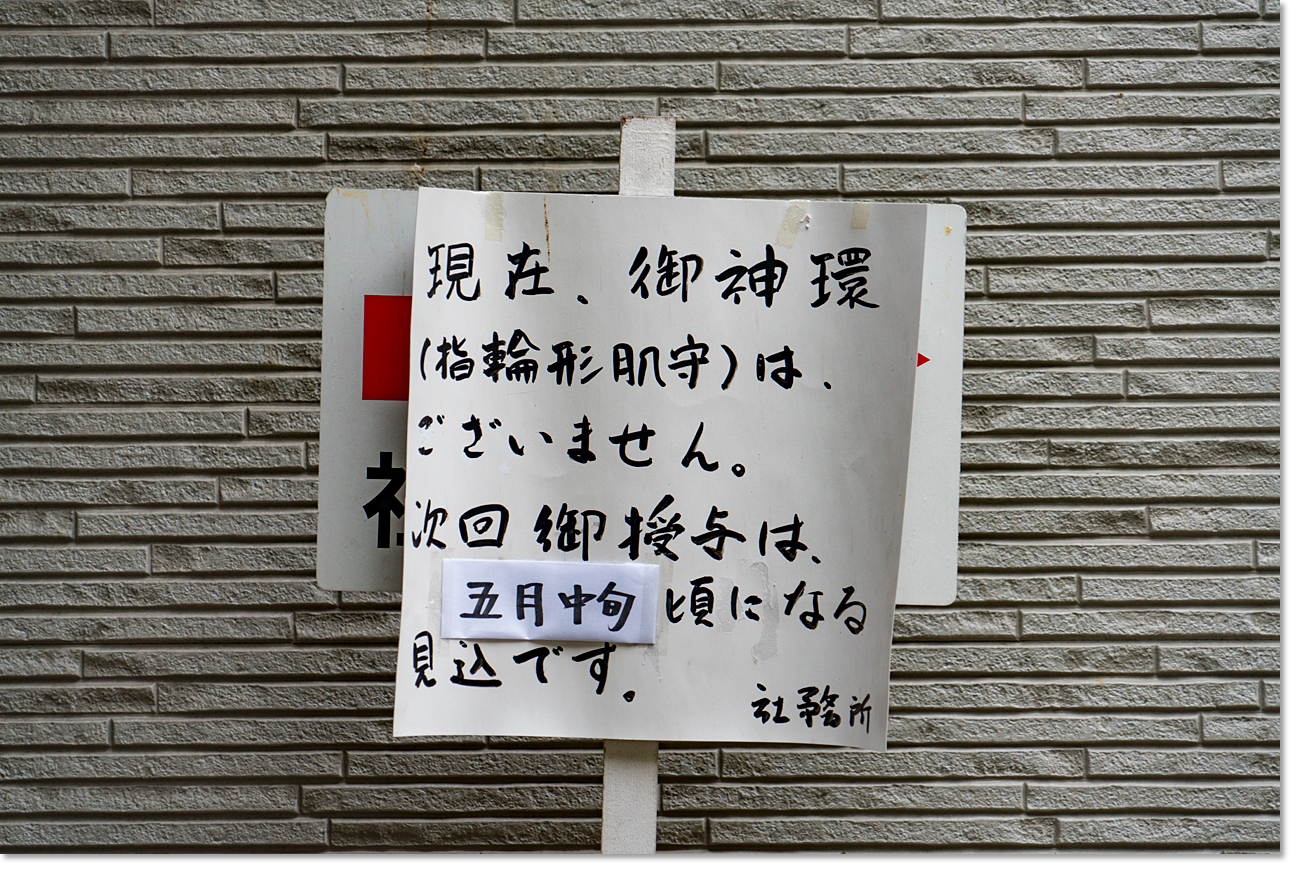 現在、御神環
(指輪形肌守)は、
ございません。
次回御授与は、
五月中旬頃になる
見込です。
社務所